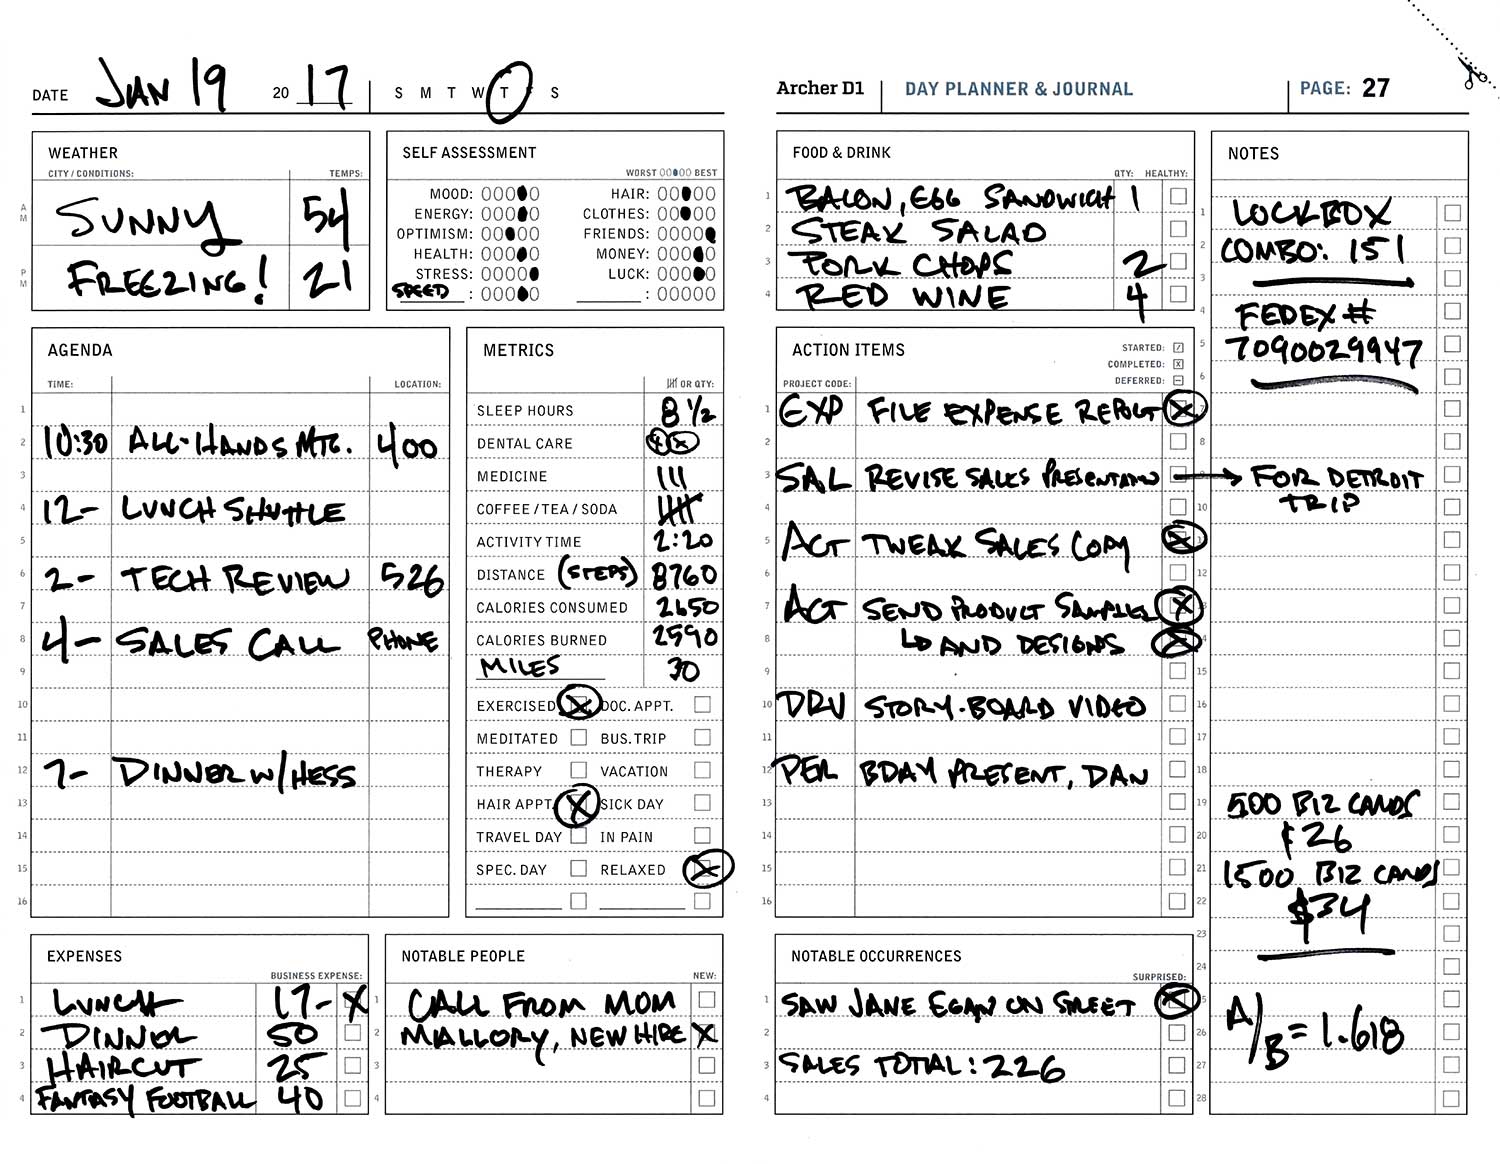 DATE JAN 19 20 17 S M T W T F S
WEATHER
CITY / CONDITIONS: TEMPS:
AM SUNNY 54
PM FREEZING! 21
SELF ASSESSMENT
WORST BEST
MOOD: HAIR:
ENERGY: CLOTHES:
OPTIMISM: FRIENDS:
HEALTH: MONEY:
STRESS: LUCK:
SPEED : :
AGENDA
TIME: LOCATION:
1
2 10:30 ALL-HANDS MTG. 400
3
4 12- LUNCH SHUTTLE
5
6 2- TECH REVIEW 526
7
8 4- SALES CALL PHONE
9
10
11
12 7- DINNER W/HESS
13
14
15
16
METRICS
OR QTY:
SLEEP HOURS 8 1/2
DENTAL CARE
MEDICINE III
COFFEE / TEA / SODA
ACTIVITY TIME 2:20
DISTANCE (STEPS) 8760
CALORIES CONSUMED 2650
CALORIES BURNED 2590
MILES 30
EXERCISED X DOC. APPT.
MEDITATED BUS. TRIP
THERAPY VACATION
HAIR APPT. X SICK DAY
TRAVEL DAY IN PAIN
SPEC. DAY RELAXED X
EXPENSES
BUSINESS EXPENSE:
1 LUNCH 17- X
2 DINNER 50
3 HAIRCUT 25
4 FANTASY FOOTBALL 40
NOTABLE PEOPLE
NEW:
1 CALL FROM MOM
2 MALLORY, NEW HIRE X
3
4
Archer D1 DAY PLANNER & JOURNAL PAGE: 27
FOOD & DRINK
QTY: HEALTHY:
1 BACON, EGG SANDWICH 1
2 STEAK SALAD
3 PORK CHOPS 2
4 RED WINE 4
ACTION ITEMS
STARTED:
COMPLETED:
DEFERRED:
PROJECT CODE:
1 EXP FILE EXPENSE REPORT X
2
3 SAL REVISE SALES PRESENTATION
4
5 ACT TWEAK SALES COPY X
6
7 ACT SEND PRODUCT SAMPLES X
8 AND DESIGNS X
9
10 DRV STORY-BOARD VIDEO
11
12 PER BDAY PRESENT, DAN
13
14
15
16
NOTABLE OCCURRENCES
SURPRISED:
1 SAW JANE EGAN ON STREET X
2
3 SALES TOTAL: 226
4
NOTES
1 LOCKBOX
2 COMBO: 151
3
4 FEDEX #
5 7090029947
6
7
8
9 FOR DETROIT
10 TRIP
11
12
13
14
15
16
17
18
19 500 BIZ CARDS
20 $26
21 1500 BIZ CARDS
22 $34
23
24
25
26 A/B = 1.618
27
28